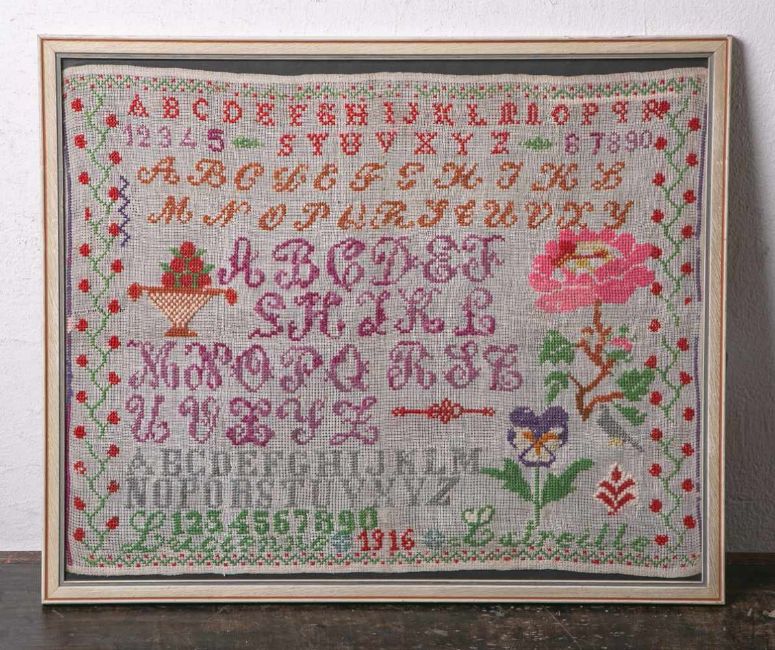 A B C D E F G H I J K L M N O P Q R
1 2 3 4 5 S T U V X Y Z 6 7 8 9 0
A B C D E F G H I K L
M N O P Q R S T U V X Y
A B C D E F
G H I K L
M N O P Q R S T
U V X Y Z
A B C D E F G H I J K L M
N O P Q R S T U V X Y Z
1 2 3 4 5 6 7 8 9 0
Lucienne 1916